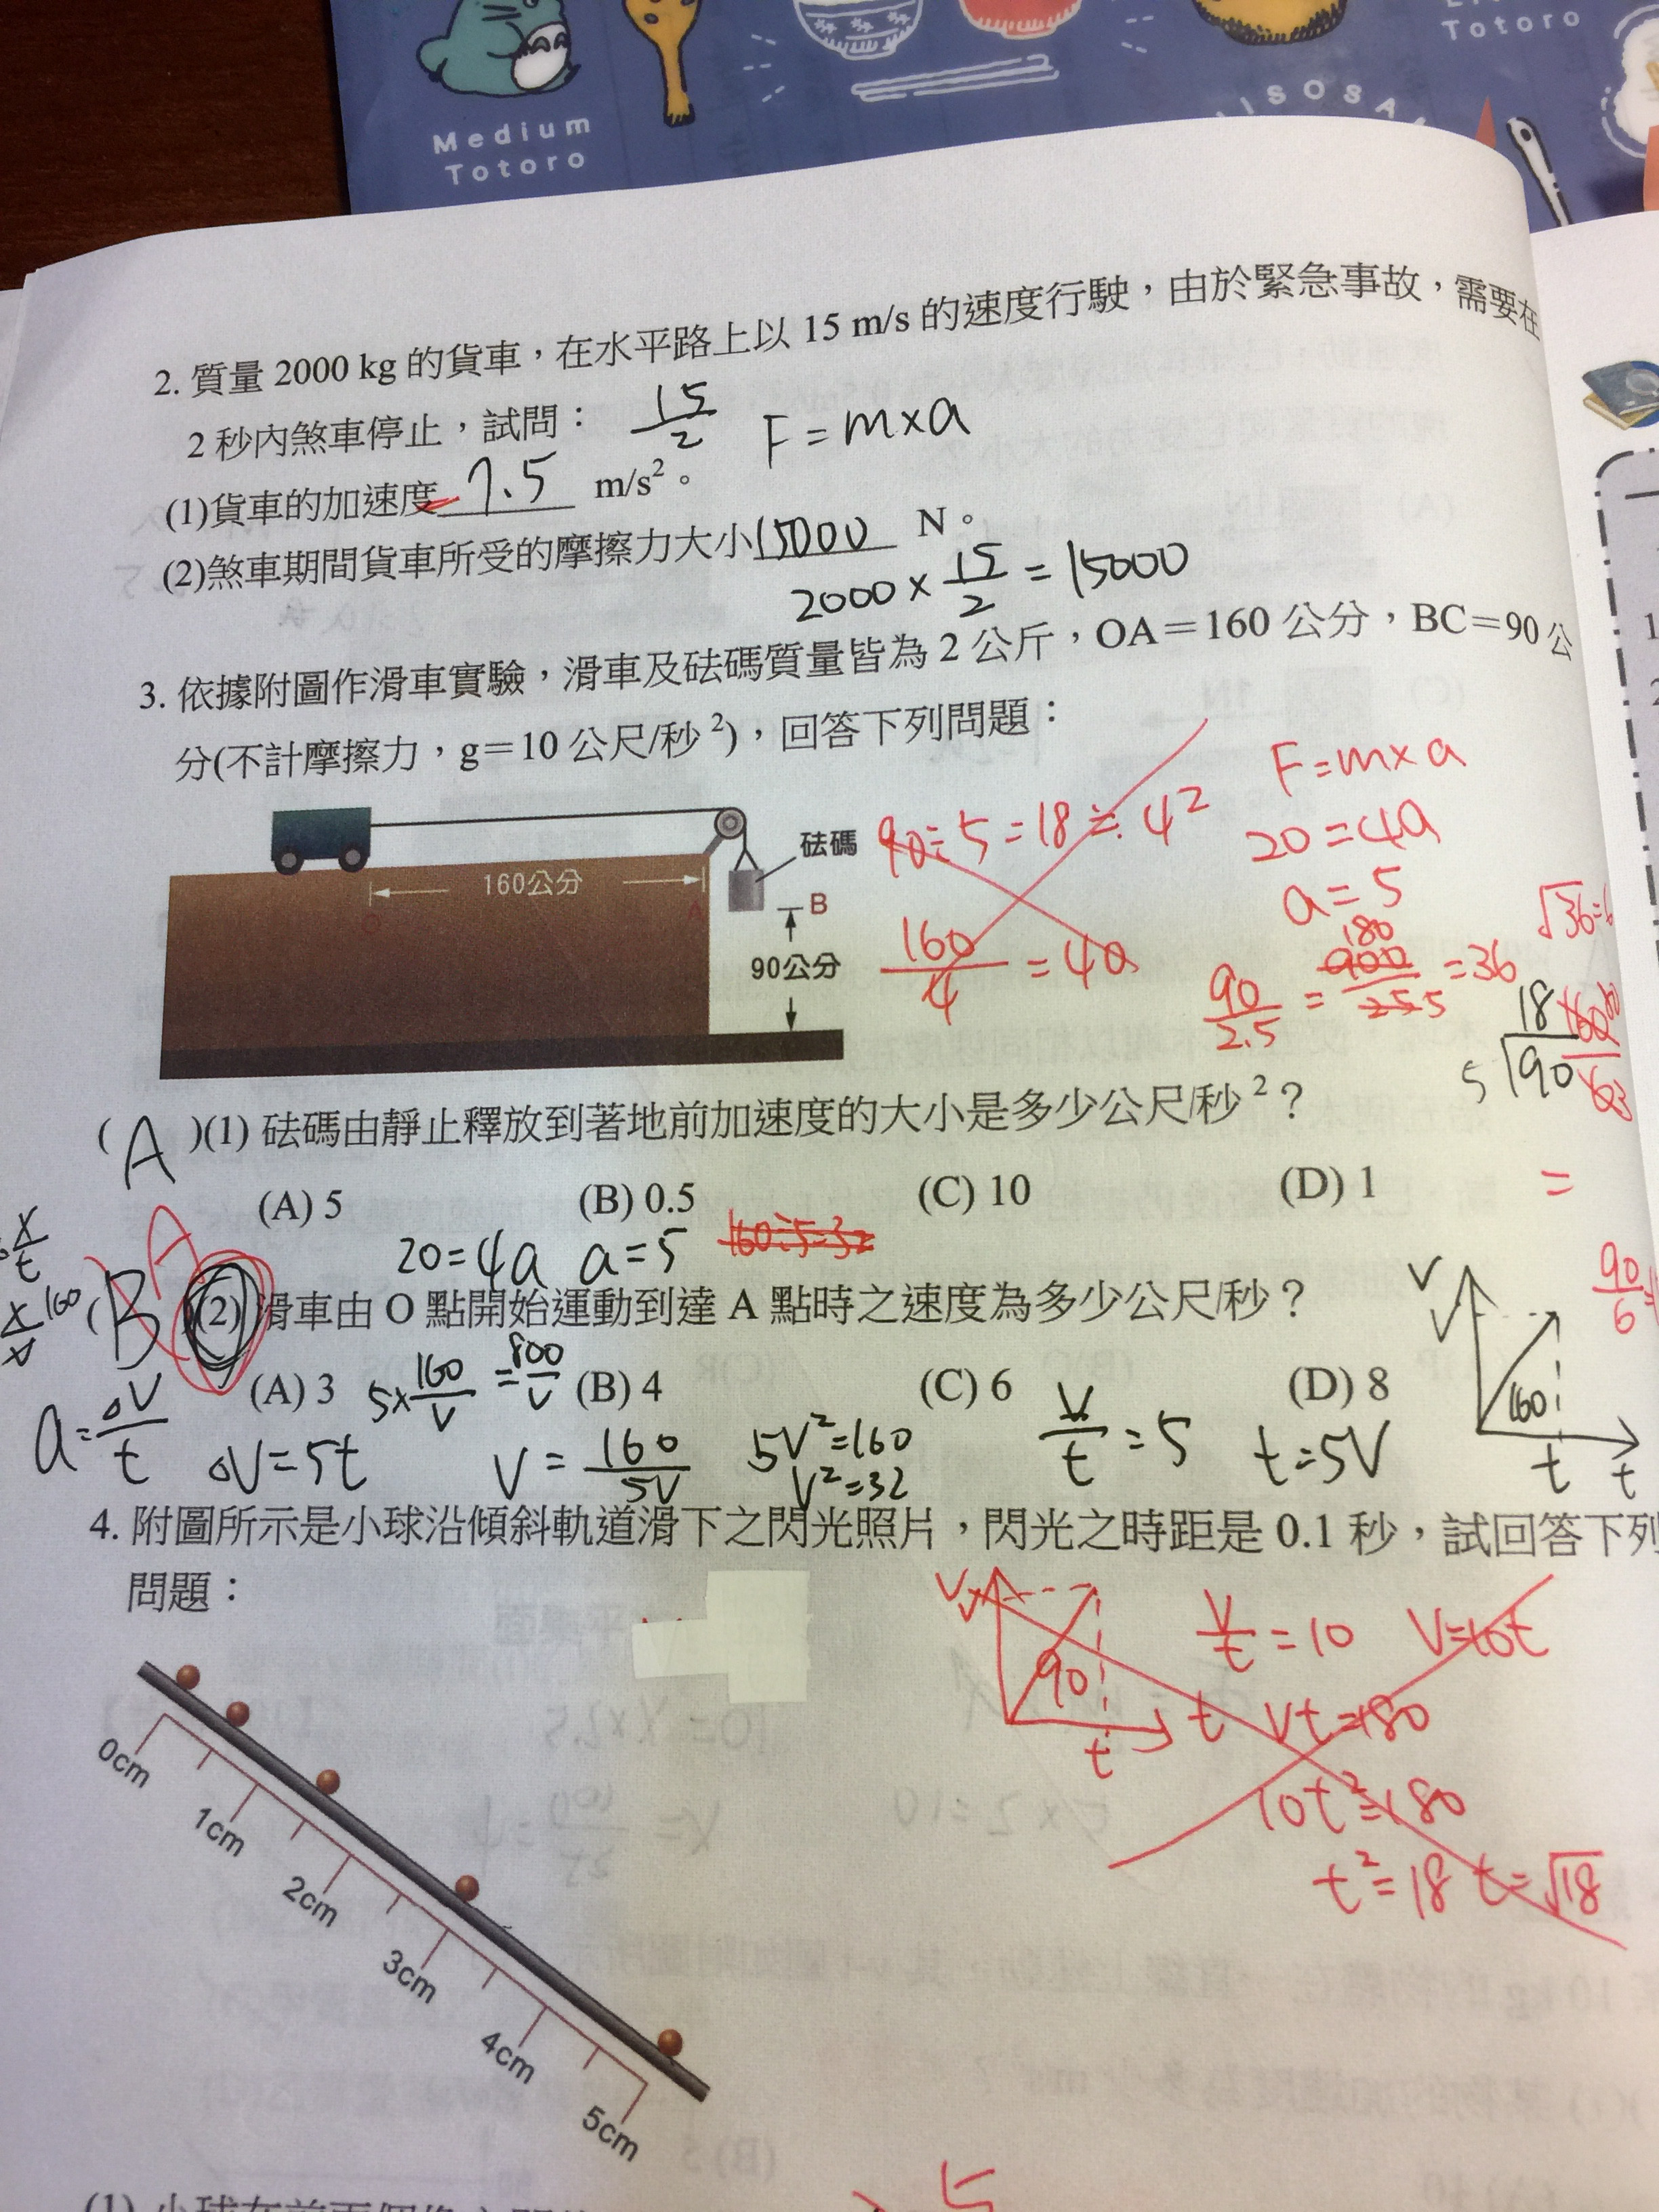 Medium
Totoro
Totoro
2. 質量 2000 kg 的貨車，在水平路上以 15 m/s 的速度行駛，由於緊急事故，需要在
2 秒內煞車停止，試問：
15/2 F=m×a
(1)貨車的加速度 7.5 m/s²。
(2)煞車期間貨車所受的摩擦力大小 15000 N。
2000 × 15/2 = 15000
3. 依據附圖作滑車實驗，滑車及砝碼質量皆為 2 公斤，OA＝160 公分，BC＝90 公
分(不計摩擦力，g＝10 公尺/秒²)，回答下列問題：
F=m×a
90÷5=18≒4²
20=4a
a=5
160/4 = 4a
√36=6
180
90/2.5 = 900/25 5 =36
18
5 90
砝碼
160公分
O
A
B
90公分
( A )(1) 砝碼由靜止釋放到著地前加速度的大小是多少公尺/秒²？
(A) 5 (B) 0.5 (C) 10 (D) 1
20=4a a=5 160÷5=32
=
x/t
x/v 160
A
( B )(2) 滑車由 O 點開始運動到達 A 點時之速度為多少公尺/秒？
90/6
(A) 3 (B) 4 (C) 6 (D) 8
5×160/v = 800/v
a=△V/t △V=5t V=160/5V 5V²=160 V/t=5 t=5V
V²=32
V
V
160
t t
4. 附圖所示是小球沿傾斜軌道滑下之閃光照片，閃光之時距是 0.1 秒，試回答下列
問題：
V
V
90
t
t
V/t=10 V=10t
Vt=180
10t²=180
t²=18 t=√18
0cm
1cm
2cm
3cm
4cm
5cm
5